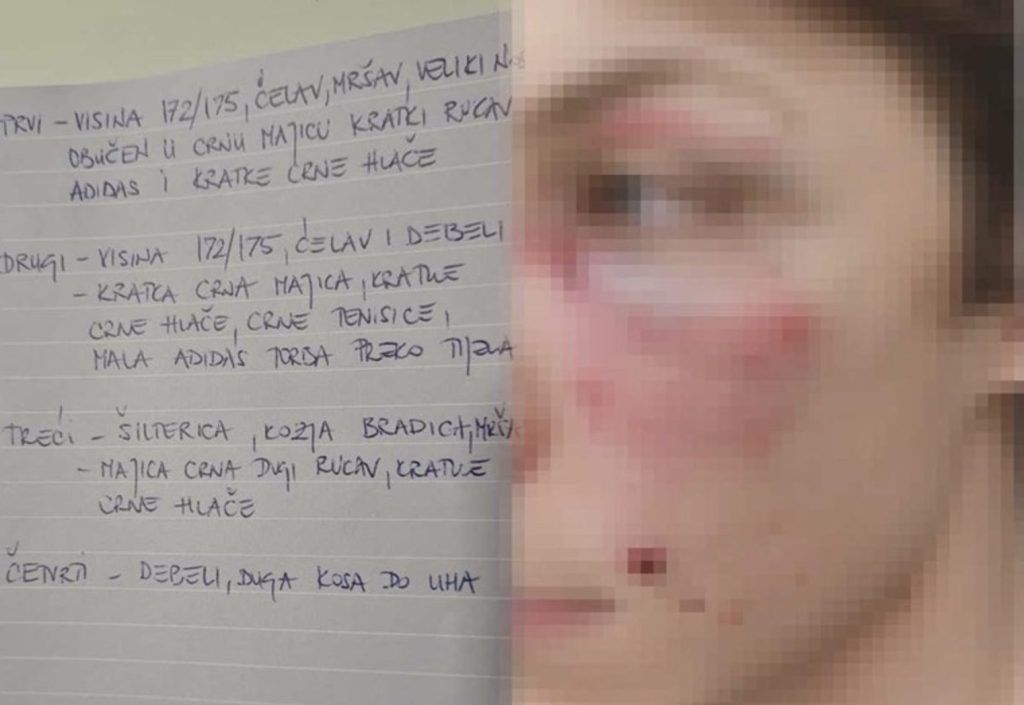 PRVI - VISINA 172/175, ĆELAV, MRŠAV, VELIKI
OBUČEN U CRNU MAJICU KRATKI RUCAV
ADIDAS I KRATKE CRNE HLAČE
DRUGI - VISINA 172/175, ĆELAV I DEBELI
- KRATKA CRNA MAJICA, KRATKE
CRNE HLAČE, CRNE TENISICE,
MALA ADIDAS TORBA PREKO TIJELA
TREĆI - ŠILTERICA, KOZJA BRADICA,
- MAJICA CRNA DUGI RUCAV, KRATKE
CRNE HLAČE
ČETVRTI - DEBELI, DUGA KOSA DO UHA